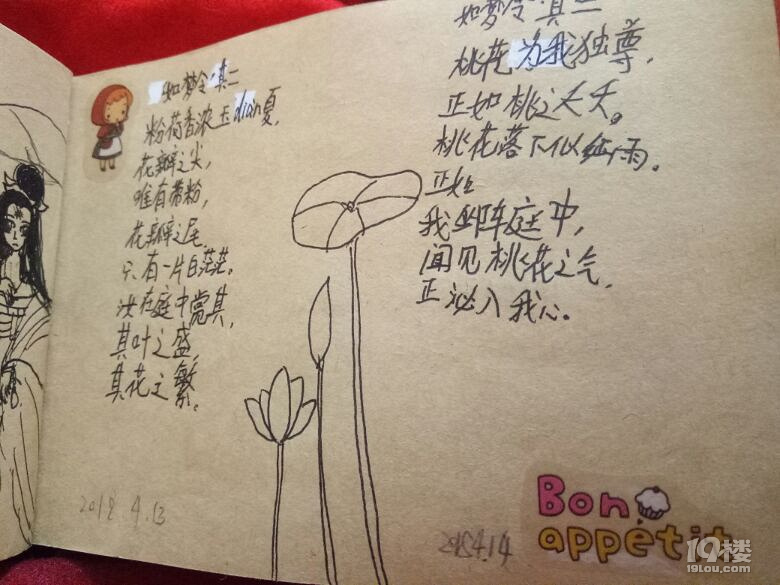 如梦令·其二
粉荷香浓玉dian夏,
花瓣之尖,
唯有带粉,
花瓣之尾,
只有一片白茫茫。
汝在庭中赏其,
其叶之盛,
其花之繁。
2018.4.13
如梦令·其三
桃花为我独尊,
正如桃之夭夭。
桃花落下似红雨。
正如
我卧庭中,
闻见桃花之气,
正沁入我心。
2018.4.14
Bon
appétit
19楼
19lou.com